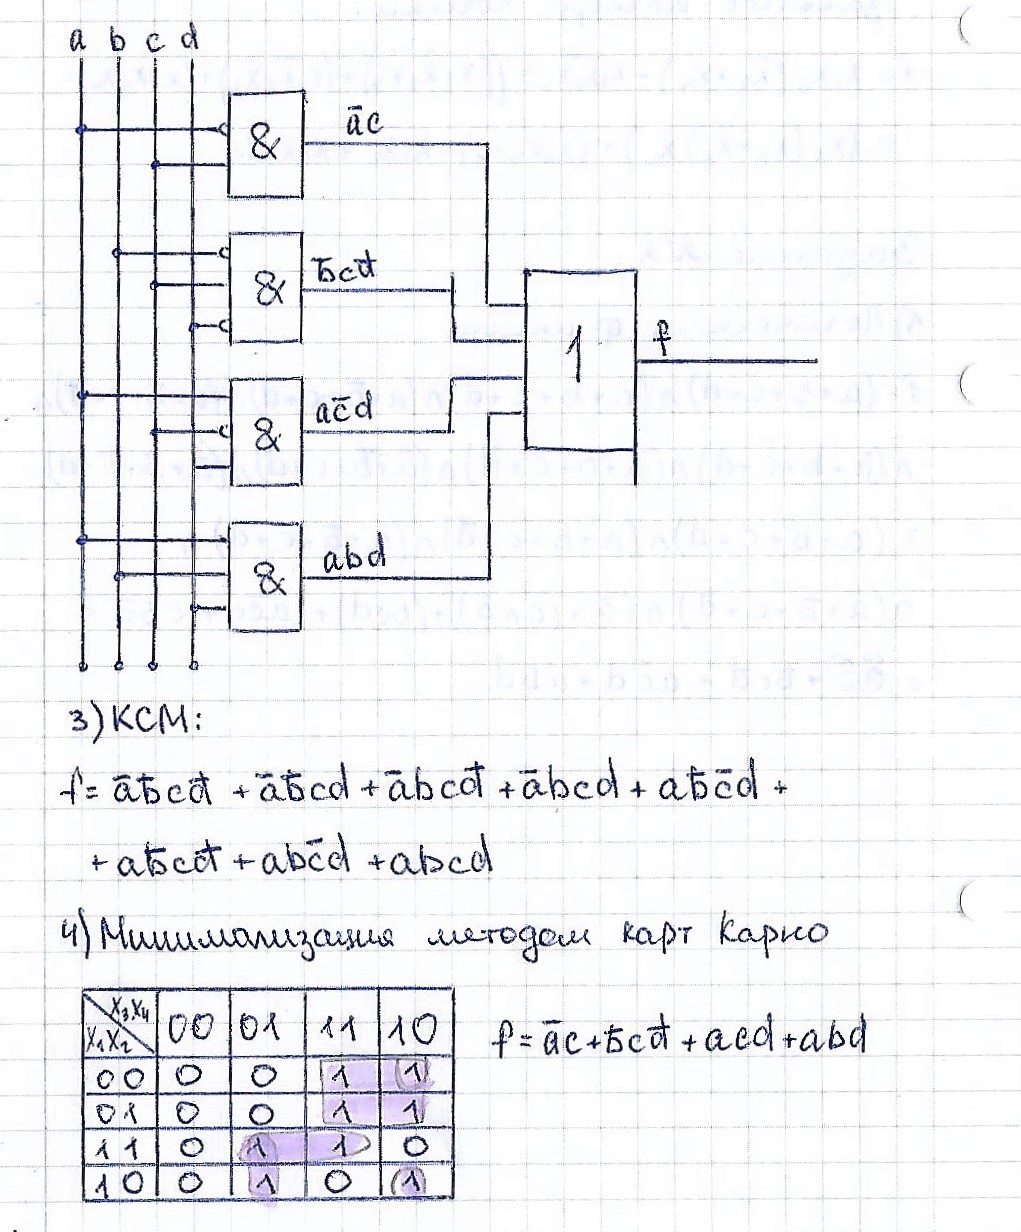 a b c d
& āc
& b̄cd̄
1 f
& ac̄d
& abd
3) КСМ:
f = āb̄cd̄ + āb̄cd + ābcd̄ + ābcd + ab̄c̄d +
+ ab̄cd̄ + abc̄d + abcd
4) Минимализация методом карт Карно
X₃X₄ X₁X₂ 00 01 11 10
00 0 0 1 1
01 0 0 1 1
11 0 1 1 0
10 0 1 0 1
f = āc + b̄cd̄ + acd + abd